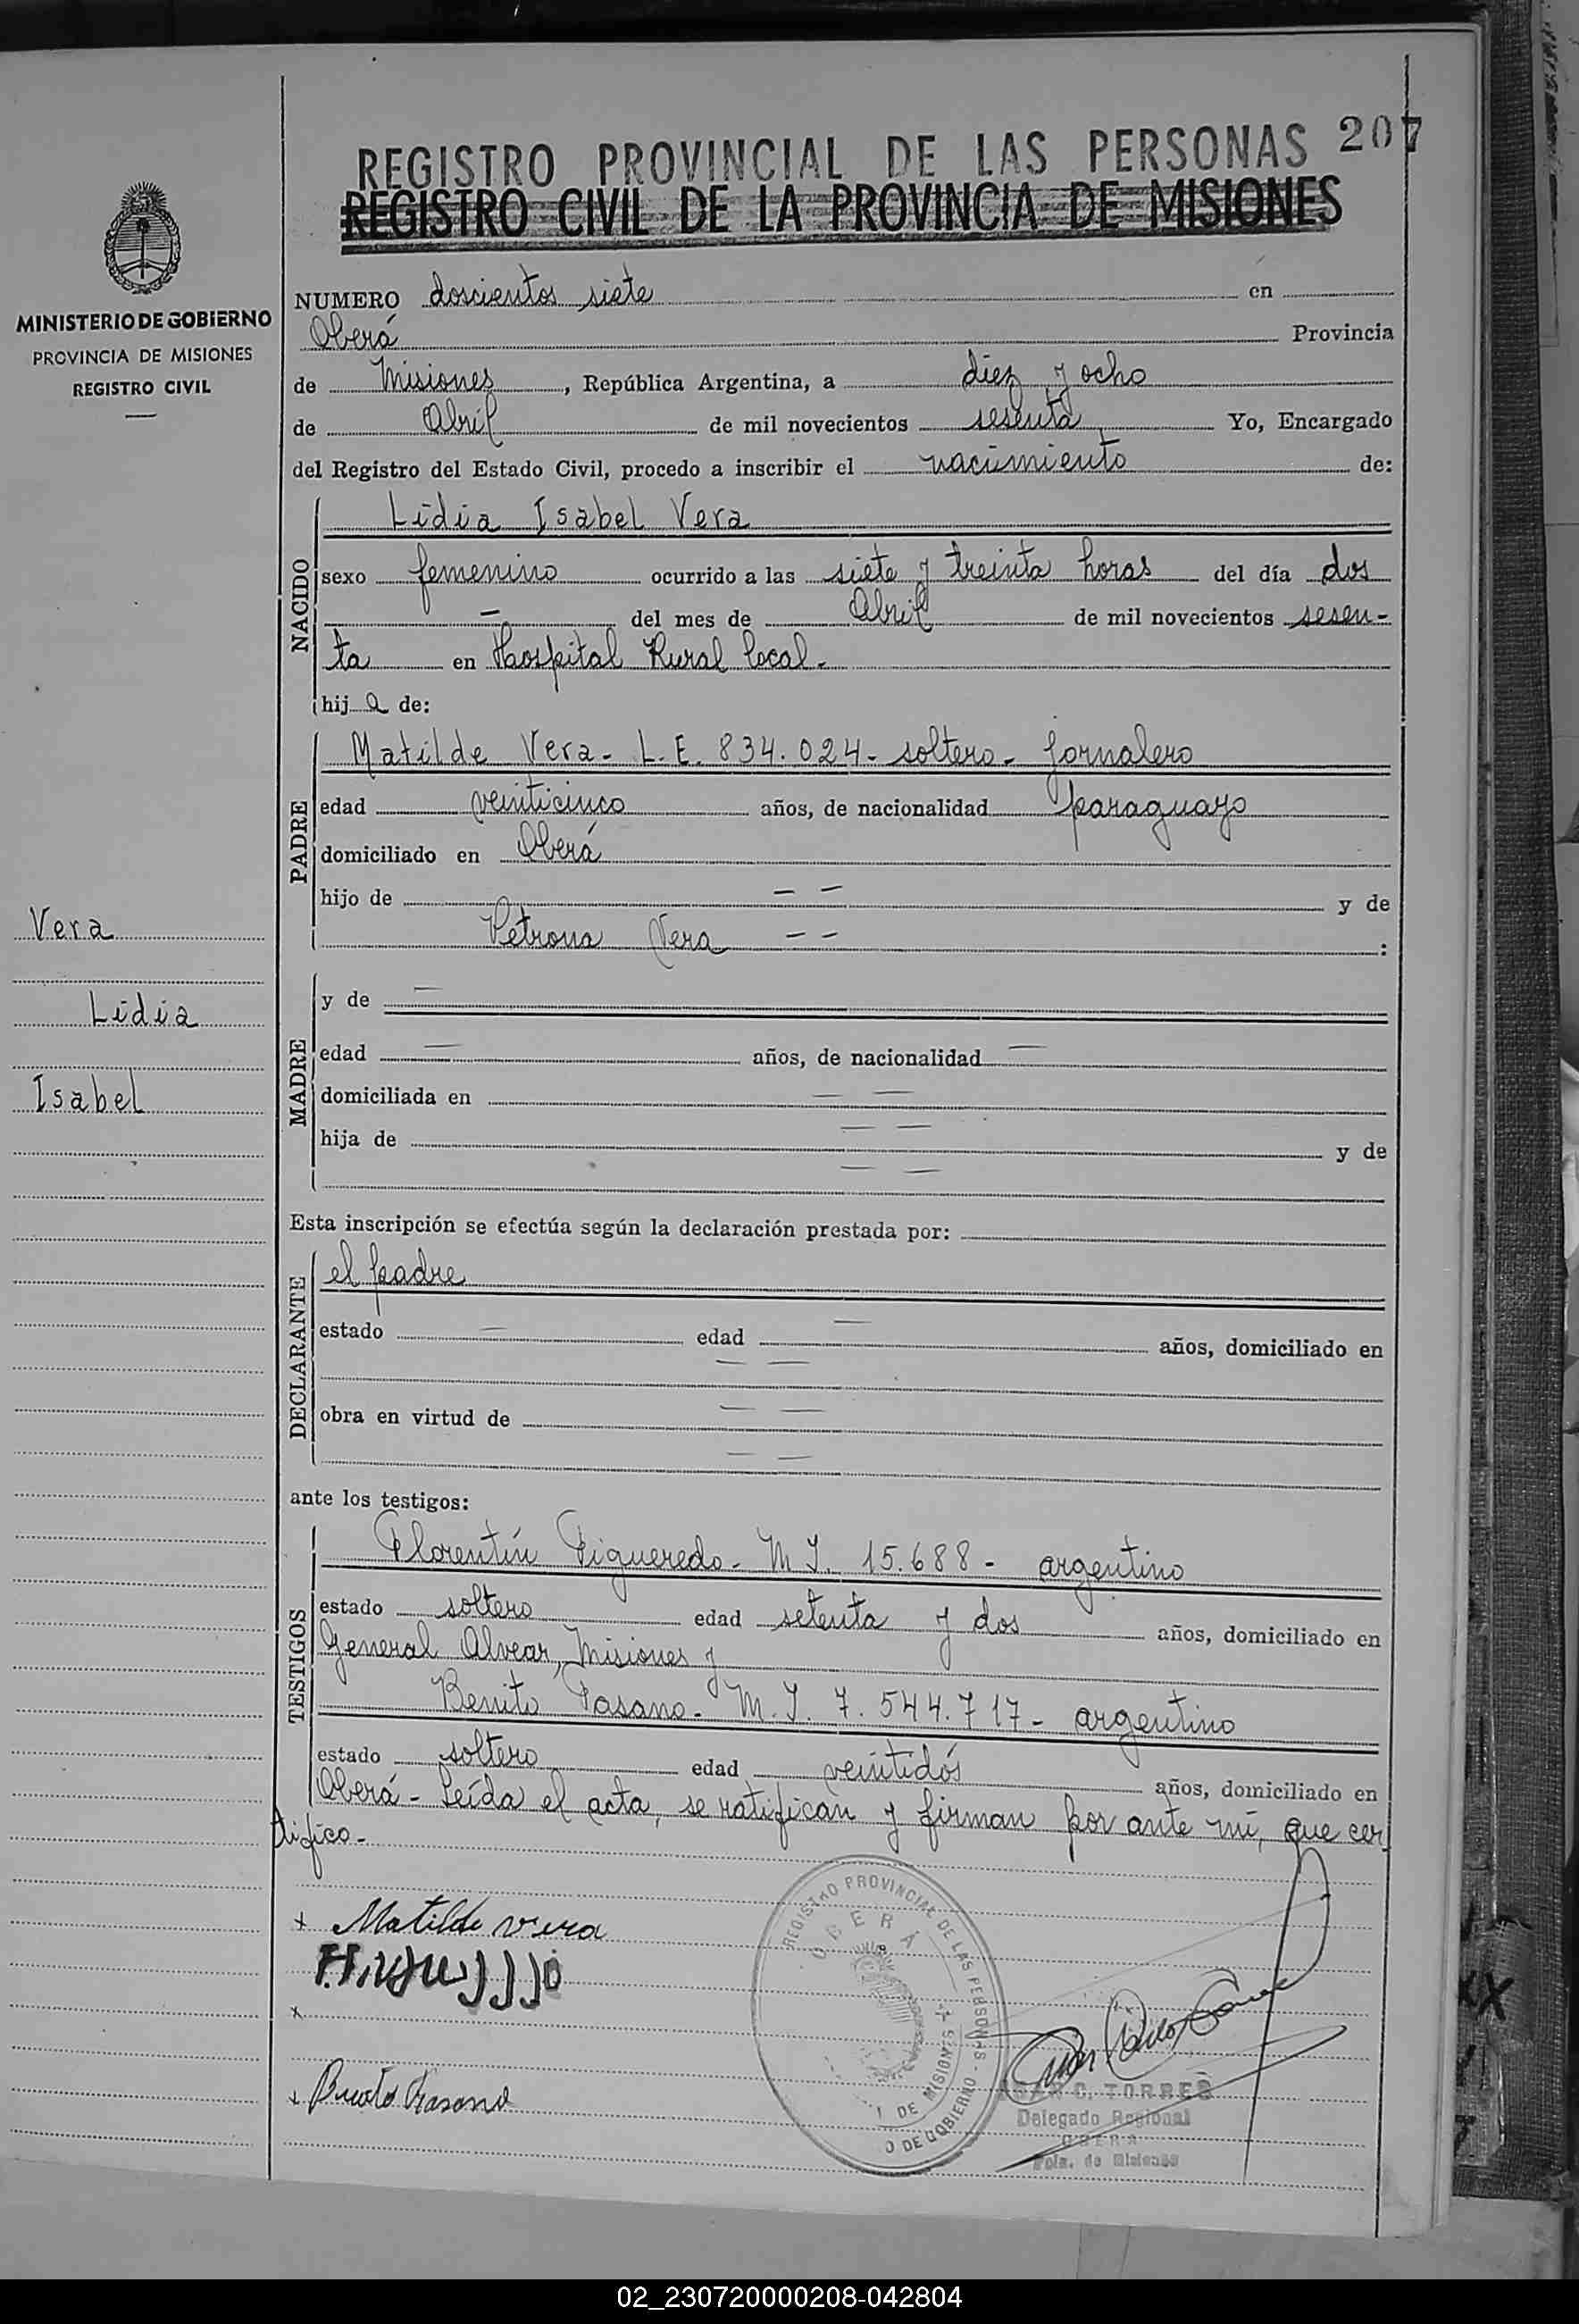 REGISTRO PROVINCIAL DE LAS PERSONAS 207
REGISTRO CIVIL DE LA PROVINCIA DE MISIONES
MINISTERIO DE GOBIERNO
PROVINCIA DE MISIONES
REGISTRO CIVIL
NUMERO doscientos siete en
Oberá Provincia
de Misiones, República Argentina, a diez y ocho
de Abril de mil novecientos sesenta Yo, Encargado
del Registro del Estado Civil, procedo a inscribir el nacimiento de:
NACIDO
Lidia Isabel Vera
sexo femenino ocurrido a las siete y treinta horas del día dos
— del mes de Abril de mil novecientos sesen-
ta en Hospital Rural local.
hij a de:
PADRE
Matilde Vera - L.E. 834.024 - soltero - jornalero
edad veinticinco años, de nacionalidad paraguayo
domiciliado en Oberá
hijo de — — y de
Petrona Vera — — :
Vera
Lidia
Isabel
MADRE
y de —
edad — años, de nacionalidad —
domiciliada en — —
hija de — — y de
— —
Esta inscripción se efectúa según la declaración prestada por:
DECLARANTE
el padre
estado — edad — años, domiciliado en
— —
obra en virtud de — —
— —
ante los testigos:
TESTIGOS
Florentín Figueredo - M I. 15.688 - argentino
estado soltero edad setenta y dos años, domiciliado en
General Alvear, Misiones y
Benito Fasano - M. I. 7.544.717 - argentino
estado soltero edad veintidós años, domiciliado en
Oberá - Leída el acta, se ratifican y firman por ante mí, que cer
tifico -
x Matilde vera
x
x
REGISTRO PROVINCIAL DE LAS PERSONAS -
OBERÁ
DE MISIONES
O DE GOBIERNO
JUAN C. TORRES
Delegado Regional
OBERA
Pcia. de Misiones
02_230720000208-042804